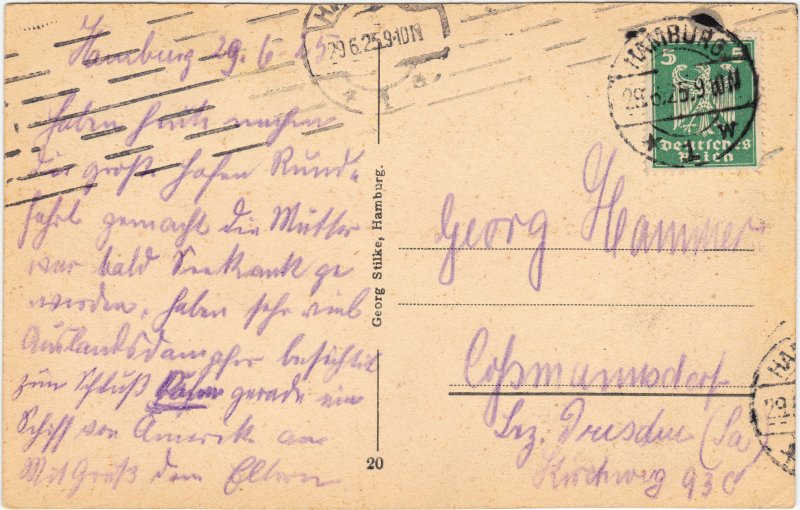 Hamburg 29.6.25
haben heute
die große Hafen Rund=
fahrt gemacht die Mutter
war bald Seekrank ge
worden, haben sehr viel
Auslandsdampfer besichtit
zum Schluß kam gerade ein
Schiff von Amerika an
Mit Gruß den Eltern
Georg Stilke, Hamburg.
20
HA
29.6.25.9-10N
* 1 a.
HAMBURG
29.6.25.9-10N
* 1 W
5 5
Deutsches
Reich
Georg Hammer
Coßmannsdorf
Bez. Dresden (Sa
Kirchweg 93 C
HA
29.